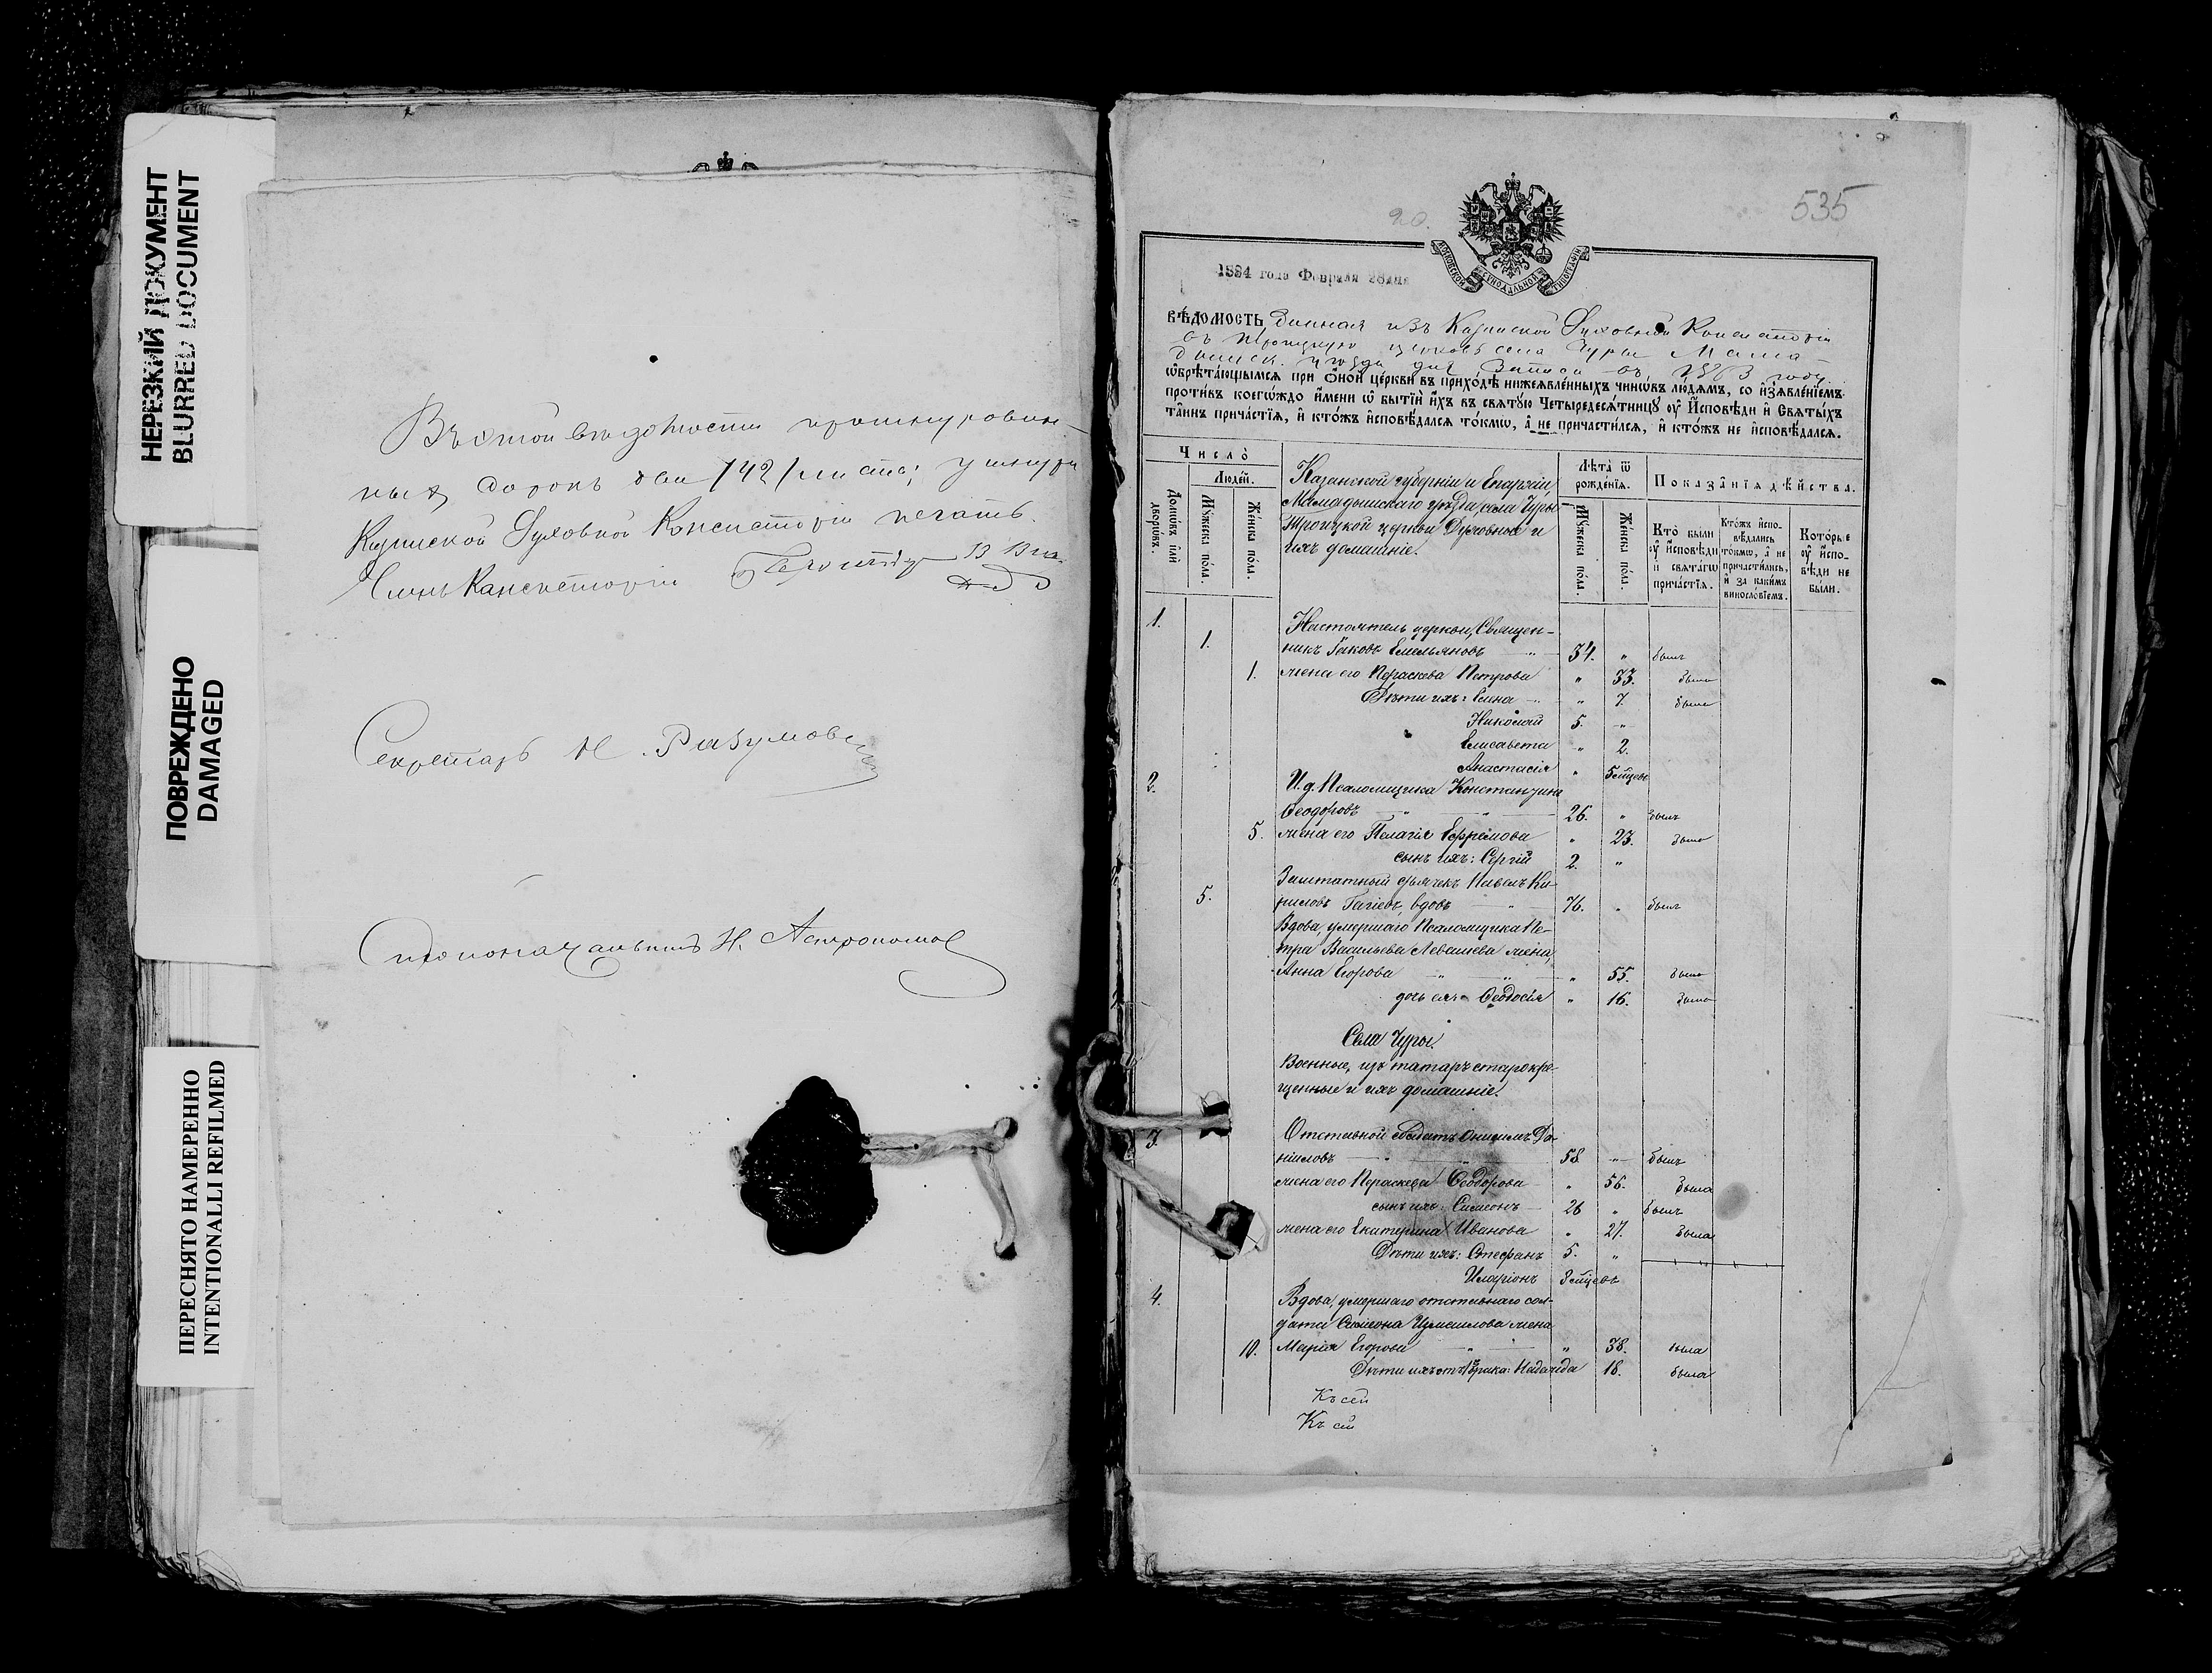 НЕРЕЗКИЙ ДОКУМЕНТ
BLURRED DOCUMENT
ПОВРЕЖДЕНО
DAMAGED
ПЕРЕСНЯТО НАМЕРЕННО
INTENTIONALLI REFILMED
Въ этой вѣдомости прошнурован-
ныхъ сорокъ два /42/ листа; у шнура
Казанской Духовной Консисторіи печать.
Членъ Консисторіи
Секретарь Н. Разумов
Столоначальникъ Н. Астрономов
20.
535
МОСКОВСКОЙ СѴНОДАЛЬНОЙ ТИПОГРАФІИ
1884 года Февраля 28 дня
ВѢДОМОСТЬ, данная изъ Казанской Духовной Консисторіи
въ Троицкую церковь села Чуры Мама-
дышск. уѣзда для записи въ 1883 году
ѡ҆брѣта́ющымсѧ при ѻ҆́ной це́ркви въ прихо́дѣ нижеꙗ҆вле́нныхъ чинѡ́въ лю́демъ, со и҆з̾ѧвле́нїемъ
проти́въ коегѡ́ждо и҆́мени ѡ҆ бытїѝ и҆́хъ въ свѧту́ю Четыредесѧ́тницꙋ ᲂу҆ И҆́сповѣди и҆ Свѧты́хъ
та́инъ прича́стїѧ, и҆ кто́жъ и҆сповѣ́далсѧ то́кмѡ, а҆ не причасти́лсѧ, и҆ кто́жъ не и҆сповѣ́далсѧ.
Число̀
Люде́й.
Домѡ́въ и҆лѝ дворѡ́въ.
Мꙋ́жеска по́ла.
Же́нска по́ла.
Казанской губерніи и Епархіи,
Мамадышскаго уѣзда, села Чуры
Троицкой церкви Духовные и
ихъ домашніе.
Лѣ́та ѿ рожде́нїѧ.
Мꙋ́жеска по́ла.
Же́нска по́ла.
Показа̑нїѧ дѣ́йства.
Кто̀ бы́ли ᲂу҆ и҆́сповѣди и҆ свѧта́гѡ прича́стїѧ.
Кто́жъ и҆спо-вѣ́дались то́кмѡ, а҆ не причасти́лись, и҆ за каки́мъ виносло́вїемъ.
Кото́рые ᲂу҆ и҆́спо-вѣди не бы́ли.
1. Настоятель церкви, Священ-
1. никъ Іаковъ Емельяновъ 34. " былъ
1. жена его Параскева Петрова " 33. была
Дѣти ихъ: Елина " 7. была
Николай 5. "
Елисавета " 2.
Анастасія " 5 мѣсцевъ
2. И. д. Псаломщика Константинъ
Ѳеодоровъ 26. " былъ
5. жена его Пелагія Ефремова " 23. была
сынъ ихъ: Сергій 2. "
Заштатный дьячекъ Павелъ Ки-
5. риловъ вдовъ 76. " былъ
Вдова, умершаго Псаломщика Пе-
тра Васильева Левашева жена,
Анна Егорова " 55. была
дочь ея: Ѳеодосія " 16. была
Села Чуры.
Военные, изъ татаръ старокре-
щенные и ихъ домашніе.
3. Отставной солдатъ Онисимъ Да-
ніиловъ 58. " былъ
жена его Параскева Ѳеодорова " 56. была
сынъ ихъ: Симеонъ 26 " былъ
жена его Екатерина Иванова " 27. была
Дѣти ихъ: Стефанъ 5. "
Иларіонъ 8 мѣсцевъ
4. Вдова, умершаго отставнаго сол-
дата Симеона Измаилова жена
10. Марія Егорова " 38. была
Дѣти ихъ отъ 1го брака: Надежда 18. была
Къ сей
Къ сей